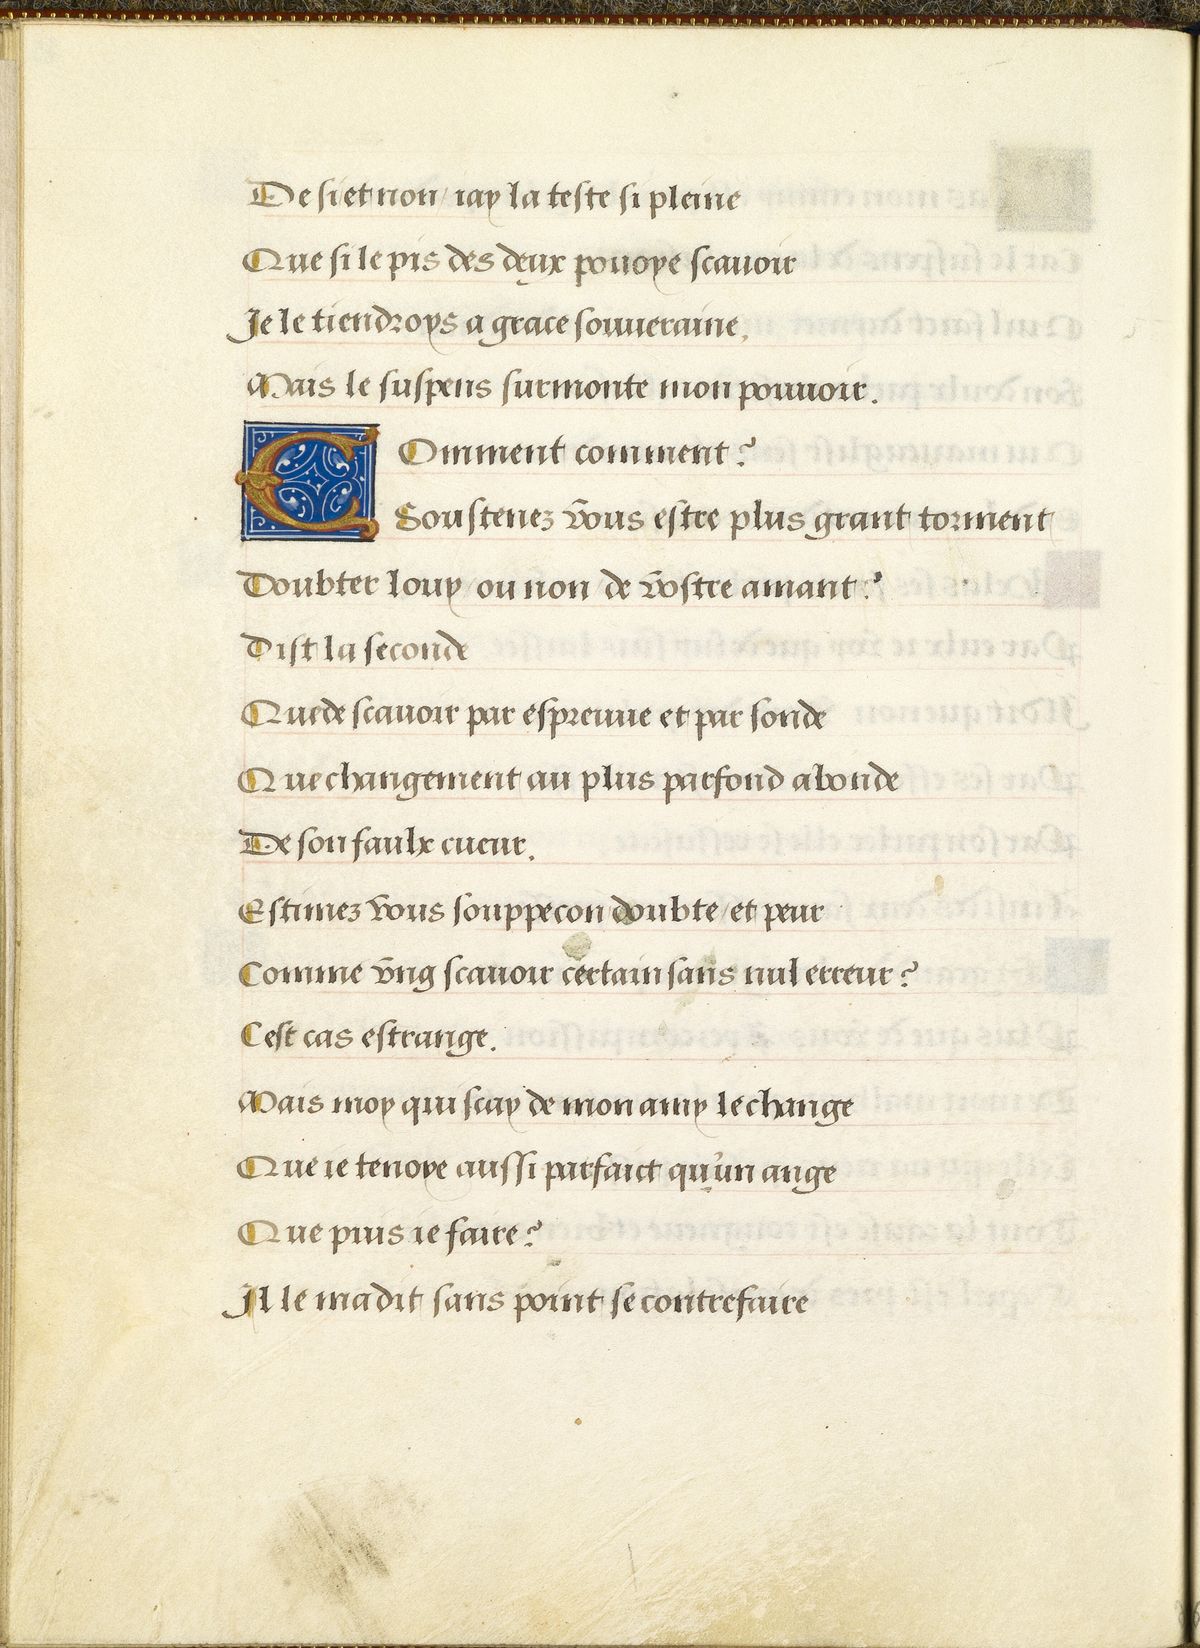 De si et non / iay la teste si pleine
Que si le pis des deux pouoye scauoir
Je le tiendroys a grace souueraine,
Mais le suspens surmonte mon pouuoir.
Comment comment ?
Soustenez vous estre plus grant torment
Doubter louy ou non de vostre amant ?
Dist la seconde
Que de scauoir par espreuue et par sonde
Que changement au plus parfond abonde
De son faulx cueur.
Estimez vous souppecon doubte / et peur
Comme vng scauoir certain sans nul erreur ?
Cest cas estrange.
Mais moy qui scay de mon amy le change
Que ie tenoye aussi parfaict qu'un ange
Que puis ie faire ?
Il le ma dit sans point se contrefaire